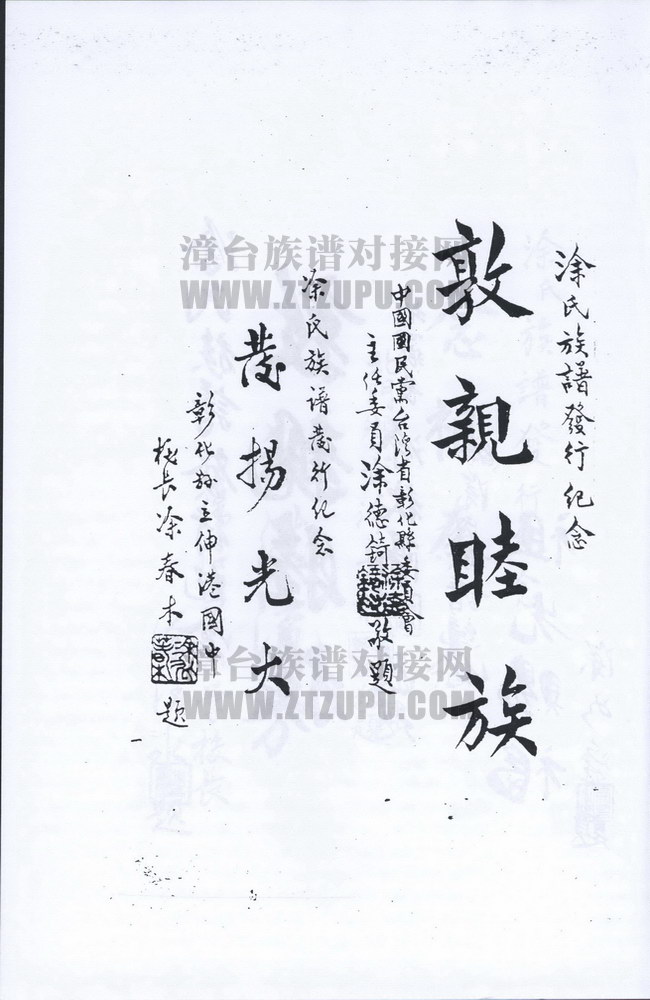 涂氏族譜發行紀念
敦親睦族
中國國民黨台湾省彰化縣委員會
主任委員涂德錡敬題
涂氏族谱發行纪念
發揚光大
彰化縣立伸港國中
校長涂春木題
漳台族谱对接网
WWW.ZTZUPU.COM
漳台族谱对接网
WWW.ZTZUPU.COM